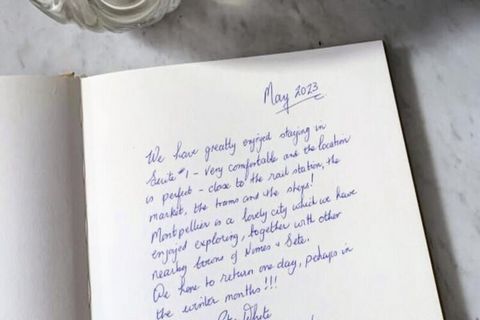 May 2023
We have greatly enjoyed staying in
Suite #1 - Very comfortable and the location
is perfect - close to the rail station, the
market, the trams and the shops!
Montpellier is a lovely city which we have
enjoyed exploring, together with other
nearby towns of Nimes + Sete.
We hope to return one day, perhaps in
the winter months!!!
White